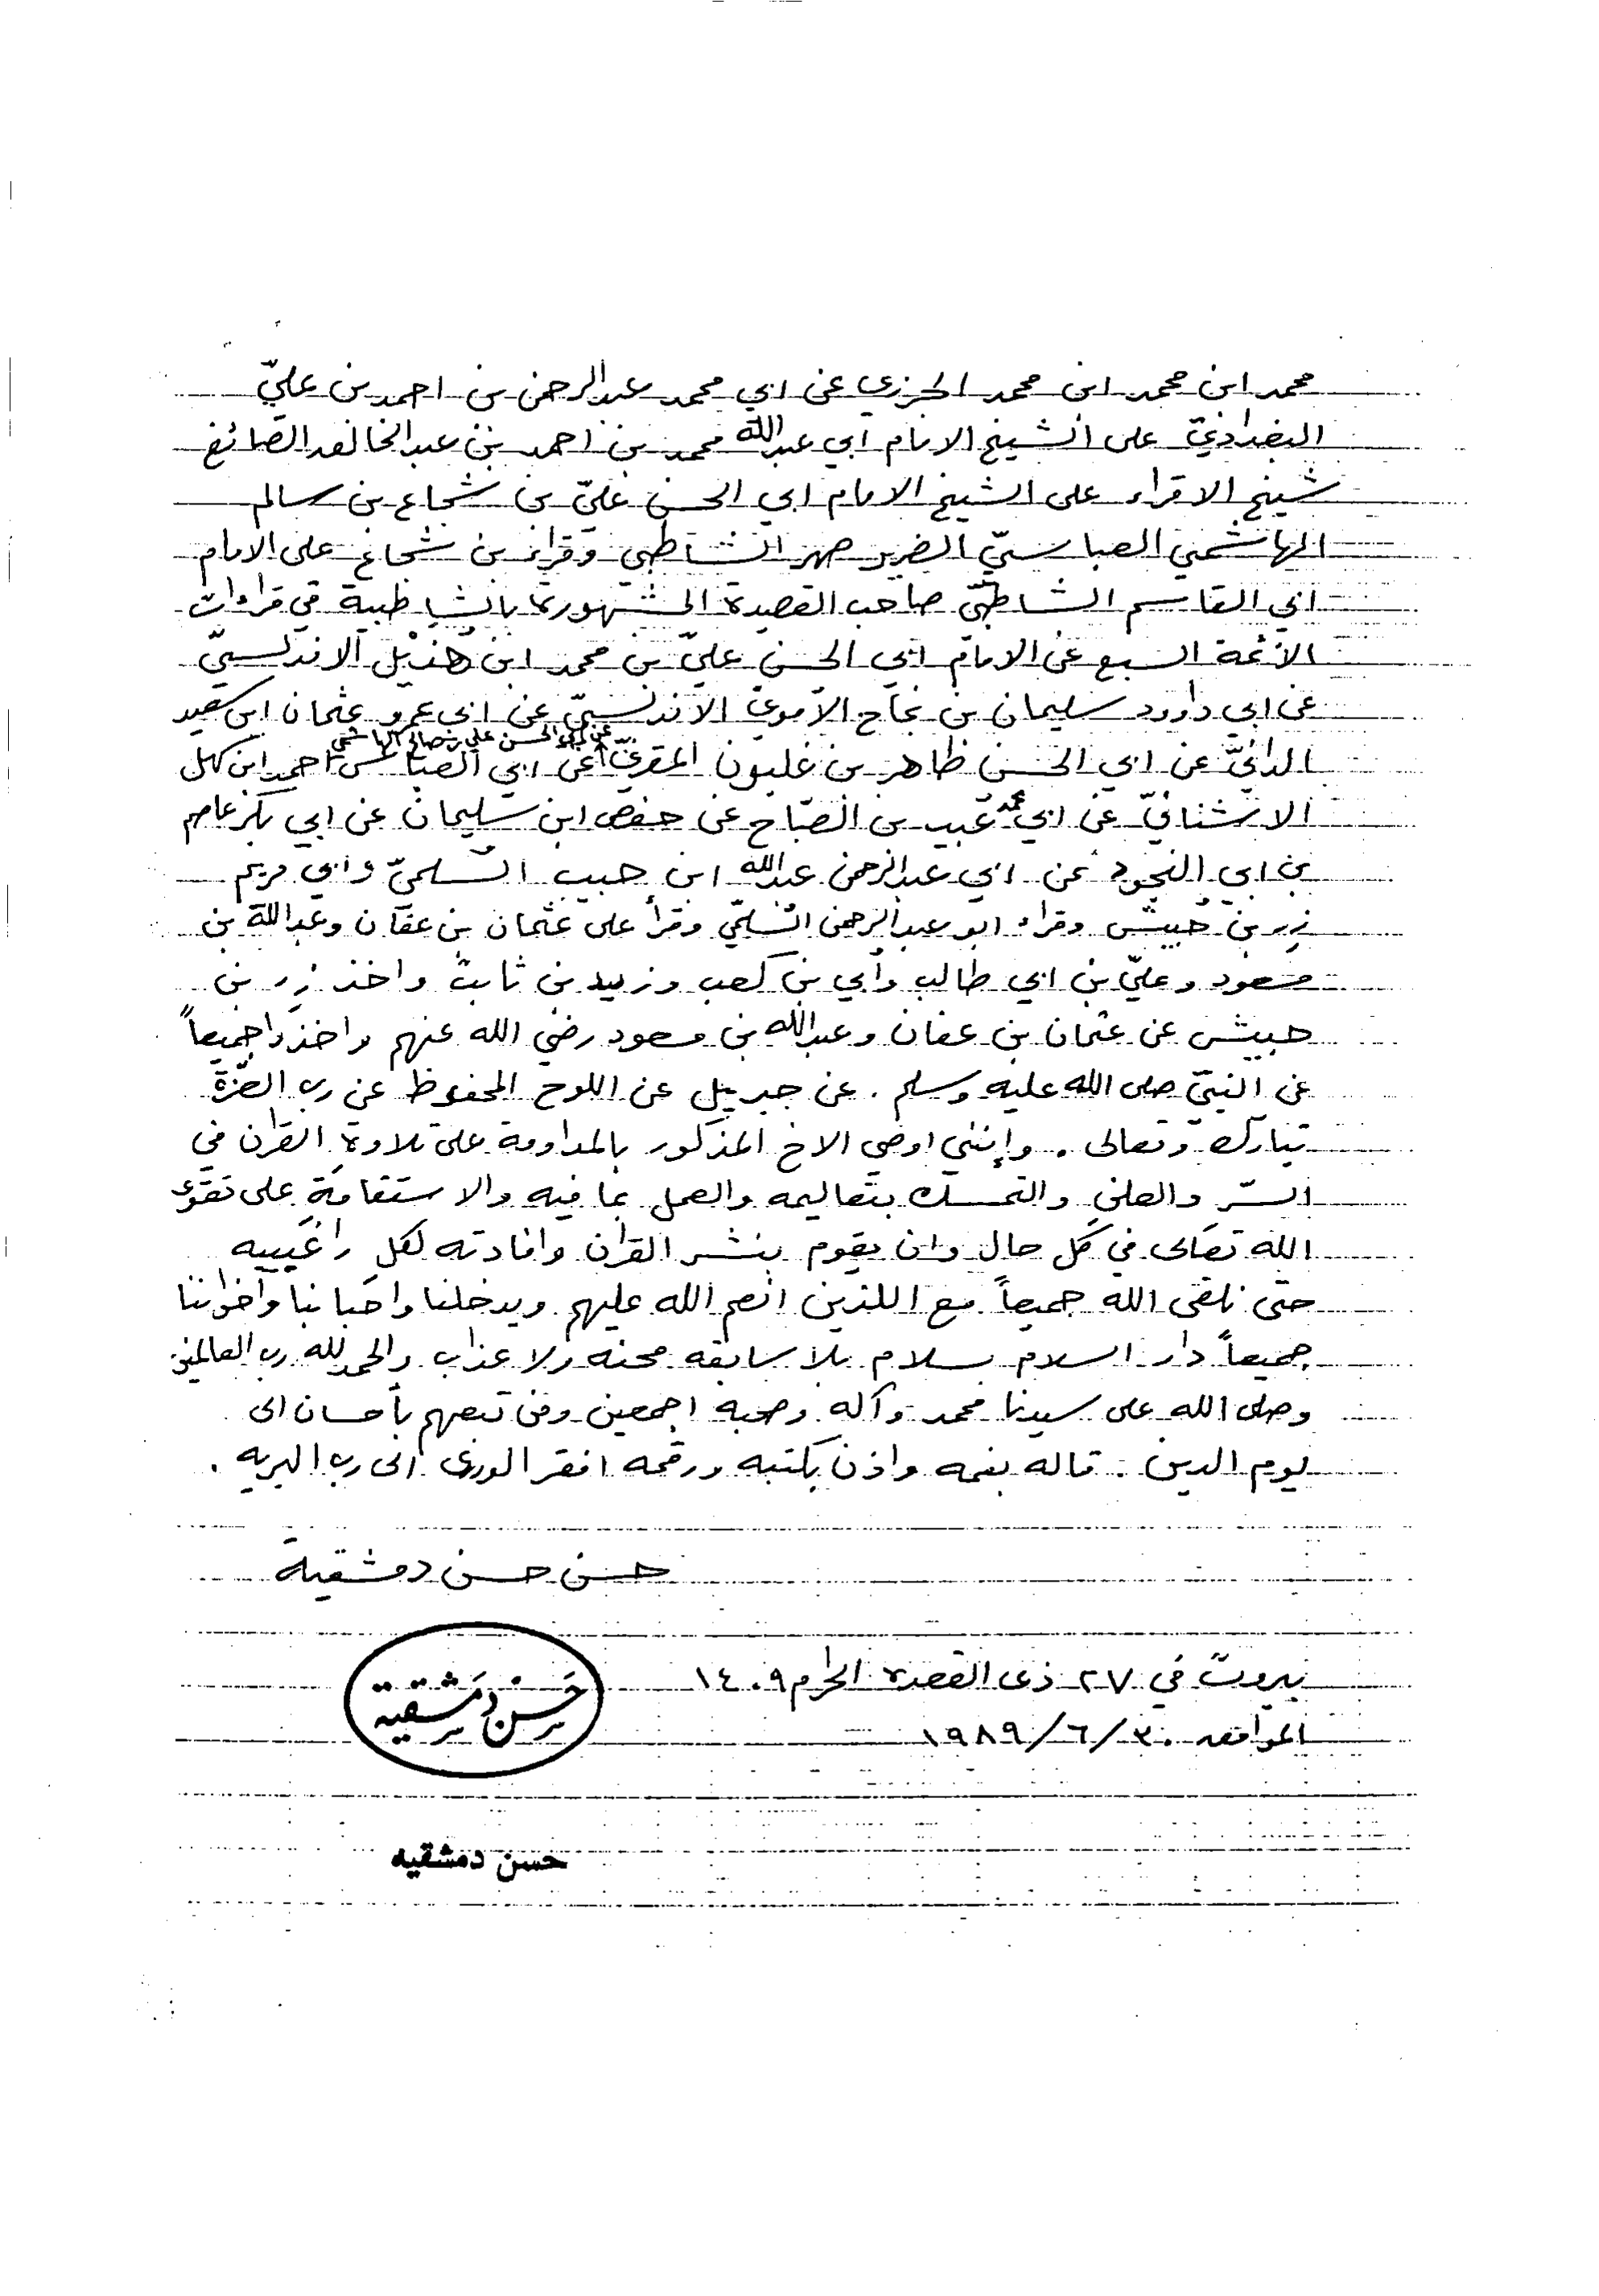 محمد ابن محمد ابن محمد الجزري عن ابي محمد عبدالرحمن بن احمد بن عليّ
البغداديّ على الشيخ الامام ابي عبدالله محمد بن احمد بن عبدالخالق الصائغ
شيخ الاقراء على الشيخ الامام ابي الحسن عليّ بن شجاع بن سالم
الهاشمي العباسيّ الضرير صهر الشاطبي وقراء بن شجاع على الامام
ابي القاسم الشاطبيّ صاحب القصيدة المشهورة بالشاطبية في قراءات
الائمة السبع عن الامام ابي الحسن عليّ بن محمد ابن هذيل الاندلسيّ
عن ابي داوود سليمان بن نجاح الأمويّ الاندلسيّ عن ابي عمرو عثمان ابن سعيد
الدانيّ عن ابي الحسن طاهر بن غلبون المقريّ عن ابي الحسن علي بن صالح الهاشمي عن ابي العباس احمد ابن سهل
الاشنانيّ عن ابي محمد عبيد بن الصبّاح عن حفص ابن سليمان عن ابي بكر عاصم
بن ابي النجود عن ابي عبدالرحمن عبدالله ابن حبيب السلميّ وابي مريم
زر بن حُبيش وقراء ابو عبدالرحمن السُّلميّ وقرأ على عثمان بن عفّان وعبدالله بن
مسعود وعليّ بن ابي طالب وأبي بن كعب وزيد بن ثابت واخذ زر بن
حبيش عن عثمان بن عفان وعبدالله بن مسعود رضي الله عنهم واخذوا جميعاً
عن النبيّ صلى الله عليه وسلم . عن جبريل عن اللوح المحفوظ عن رب العزّة
تبارك وتعالى . وإنني اوصي الاخ المذكور بالمداومة على تلاوة القرآن في
السّر والعلن والتمسك بتعاليمه والعمل بما فيه والاستقامة على تقوى
الله تعالى في كل حال وان يقوم بنشر القرآن وافادته لكل راغب فيه
حتى نلقى الله جميعاً مع اللذين انعم الله عليهم ويدخلنا واحبابنا واخواننا
جميعاً دار السلام بسلام بلا سابقه محنه ولا عذاب والحمد لله رب العالمين
وصلى الله على سيدنا محمد وآله وصحبه اجمعين ومن تبعهم بأحسان الى
يوم الدين . قاله بفمه واذن بكتبه ورقمه افقر الورى الى رب البريه .
حسن حسن دمشقية
بيروت في ٢٧ ذى القعدة الحرام ١٤٠٩
حسن دمشقية
الموافق ٣٠/٦/١٩٨٩
حسن دمشقيه